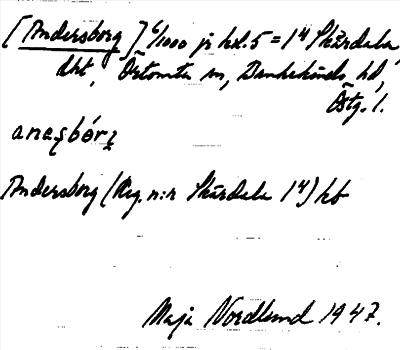 [Andersborg] 6/1000 jr hd. 5 = 1⁴ Skärdala,
dht, Örtomta sn, Bankekinds hd,
Östg. l.
anasbórj
Andersborg (Reg. n:r Skärdala 1⁴) hb
Maja Nordlund 1947.